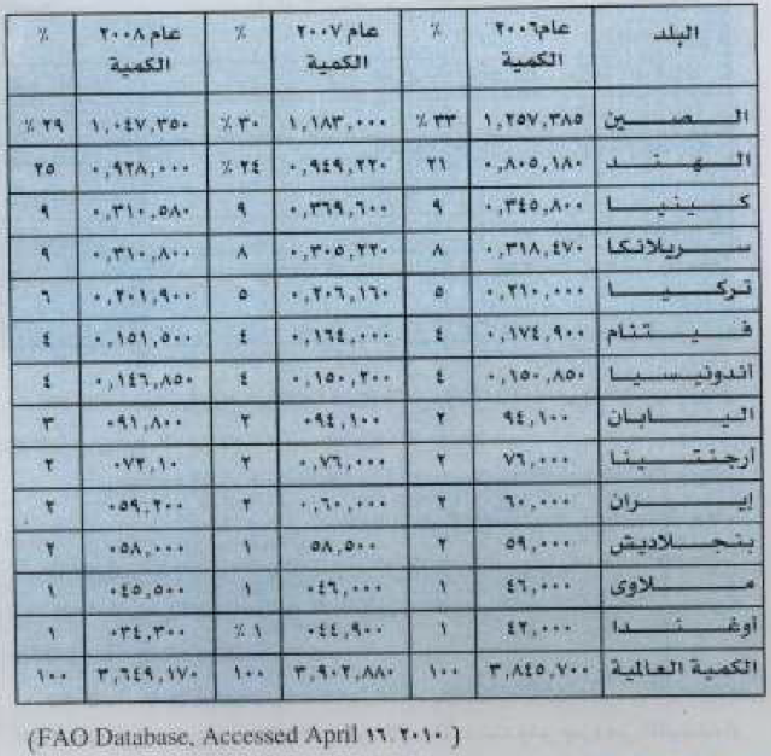 البلد عام ٢٠٠٦ الكمية % عام ٢٠٠٧ الكمية % عام ٢٠٠٨ الكمية %
الصين ١,٢٥٧,٣٨٥ ٣٣ % ١,١٨٣,٠٠٠ ٣٠ % ١,٠٤٧,٣٥٠ ٢٩ %
الهند ٠,٨٠٥,١٨٠ ٢١ ٠,٩٤٩,٢٢٠ ٢٤ % ٠,٩٢٨,٠٠٠ ٢٥
كينيا ٠,٣٤٥,٨٠٠ ٩ ٠,٣٦٩,٦٠٠ ٩ ٠,٣١٠,٥٨٠ ٩
سريلانكا ٠,٣١٨,٤٧٠ ٨ ٠,٣٠٥,٢٢٠ ٨ ٠,٣١٠,٨٠٠ ٩
تركيا ٠,٢١٠,٠٠٠ ٥ ٠,٢٠٦,١٦٠ ٥ ٠,٢٠١,٩٠٠ ٦
فيتنام ٠,١٧٤,٩٠٠ ٤ ٠,١٦٤,٠٠٠ ٤ ٠,١٥١,٥٠٠ ٤
اندونيسيا ٠,١٥٠,٨٥٠ ٤ ٠,١٥٠,٢٠٠ ٤ ٠,١٤٦,٨٥٠ ٤
اليابان ٩٤,١٠٠ ٢ ٠٩٤,١٠٠ ٢ ٠٩١,٨٠٠ ٣
أرجنتينا ٧٦,٠٠٠ ٢ ٠,٧٦,٠٠٠ ٢ ٠٧٣,١٠ ٢
إيران ٦٠,٠٠٠ ٢ ٠,٦٠,٠٠٠ ٢ ٠٥٩,٢٠٠ ٢
بنجلاديش ٥٩,٠٠٠ ٢ ٥٨,٥٠٠ ١ ٠٥٨,٠٠٠ ٢
ملاوى ٤٦,٠٠٠ ١ ٠٤٦,٠٠٠ ١ ٠٤٥,٥٠٠ ١
أوغندا ٤٢,٠٠٠ ١ ٠٤٤,٩٠٠ ١ % ٠٣٤,٣٠٠ ١
الكمية العالمية ٣,٨٤٥,٧٠٠ ١٠٠ ٣,٩٠٢,٨٨٠ ١٠٠ ٣,٦٤٩,١٧٠ ١٠٠
(FAO Database, Accessed April ١٦,٢٠١٠)